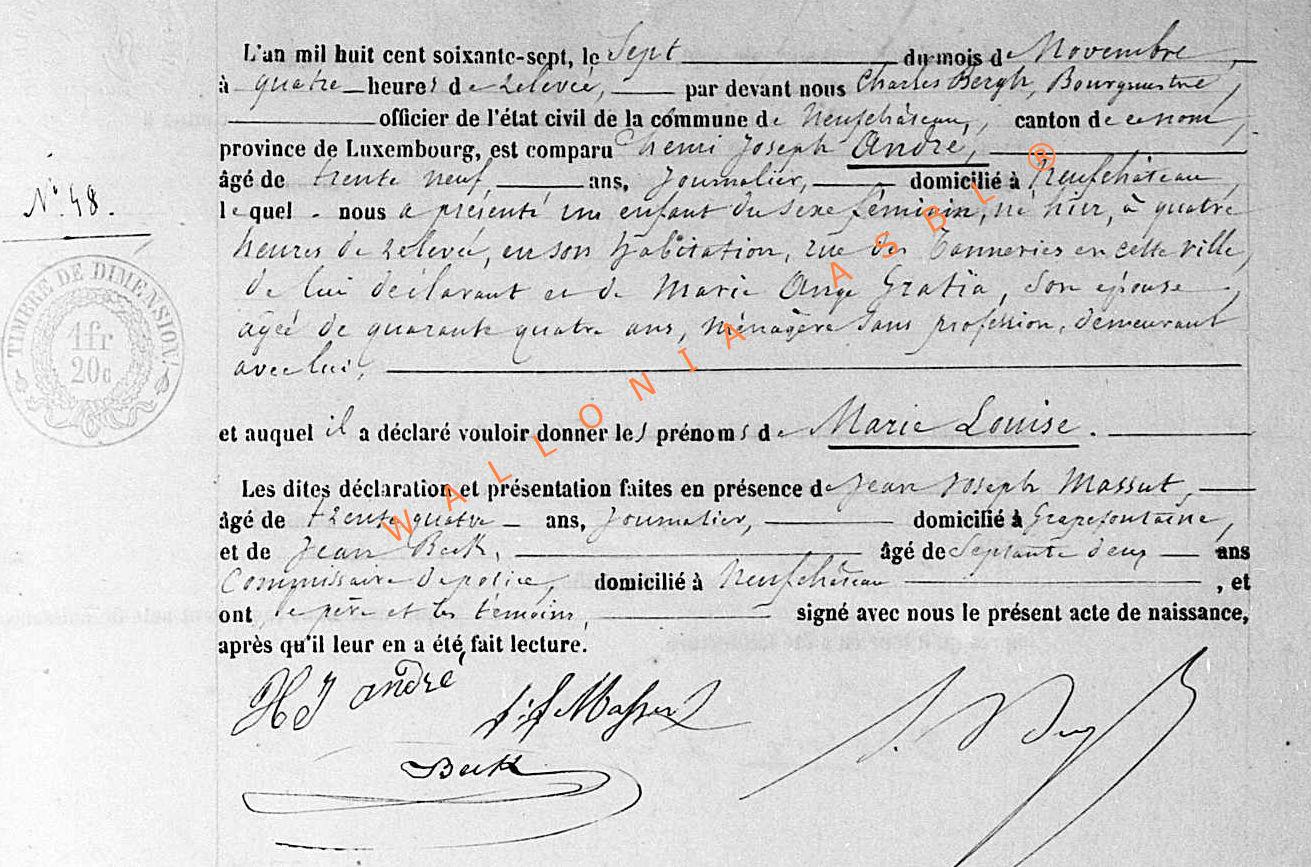 L'an mil huit cent soixante-sept, le Sept du mois de Novembre,
à quatre heures de relevée, par devant nous Charles Bergh, Bourgmestre,
officier de l'état civil de la commune de Neufchâteau, canton de ce nom,
province de Luxembourg, est comparu Henri Joseph André,
âgé de trente neuf, ans, Journalier, domicilié à Neufchâteau,
N° 48.
lequel nous a présenté un enfant du sexe féminin, né hier, à quatre
heures de relevée, en son habitation, rue des Tanneries en cette ville,
de lui déclarant et de Marie Ange Gratia, son épouse,
agée de quarante quatre ans, ménagère sans profession, demeurant
avec lui,
TIMBRE DE DIMENSION
1fr
20c
et auquel il a déclaré vouloir donner les prénoms de Marie Louise.
Les dites déclaration et présentation faites en présence de Jean Joseph Massut,
âgé de trente quatre ans, Journalier, domicilié à Grapfontaine,
et de Jean Beck, âgé de Septante deux ans
Commissaire de police, domicilié à Neufchâteau, et
ont le père et les témoins, signé avec nous le présent acte de naissance,
après qu'il leur en a été fait lecture.
HJ andré
Beck
WALLONIA ASBL ®